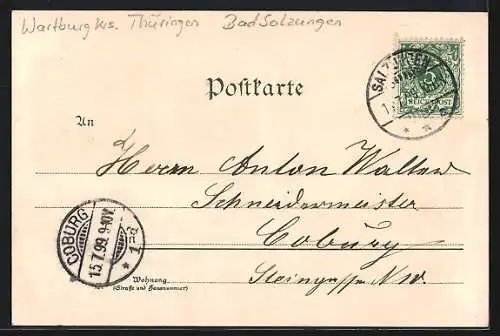 Wartburgkrs. Thüringen Bad Salzungen
Postkarte
SALZUNGEN
REICHSPOST
An
Herrn Anton Walter
Schneidermeister
Coburg
COBURG
15.7.99. 9-10V.
Wohnung
(Straße und Hausnummer)
Steingasse